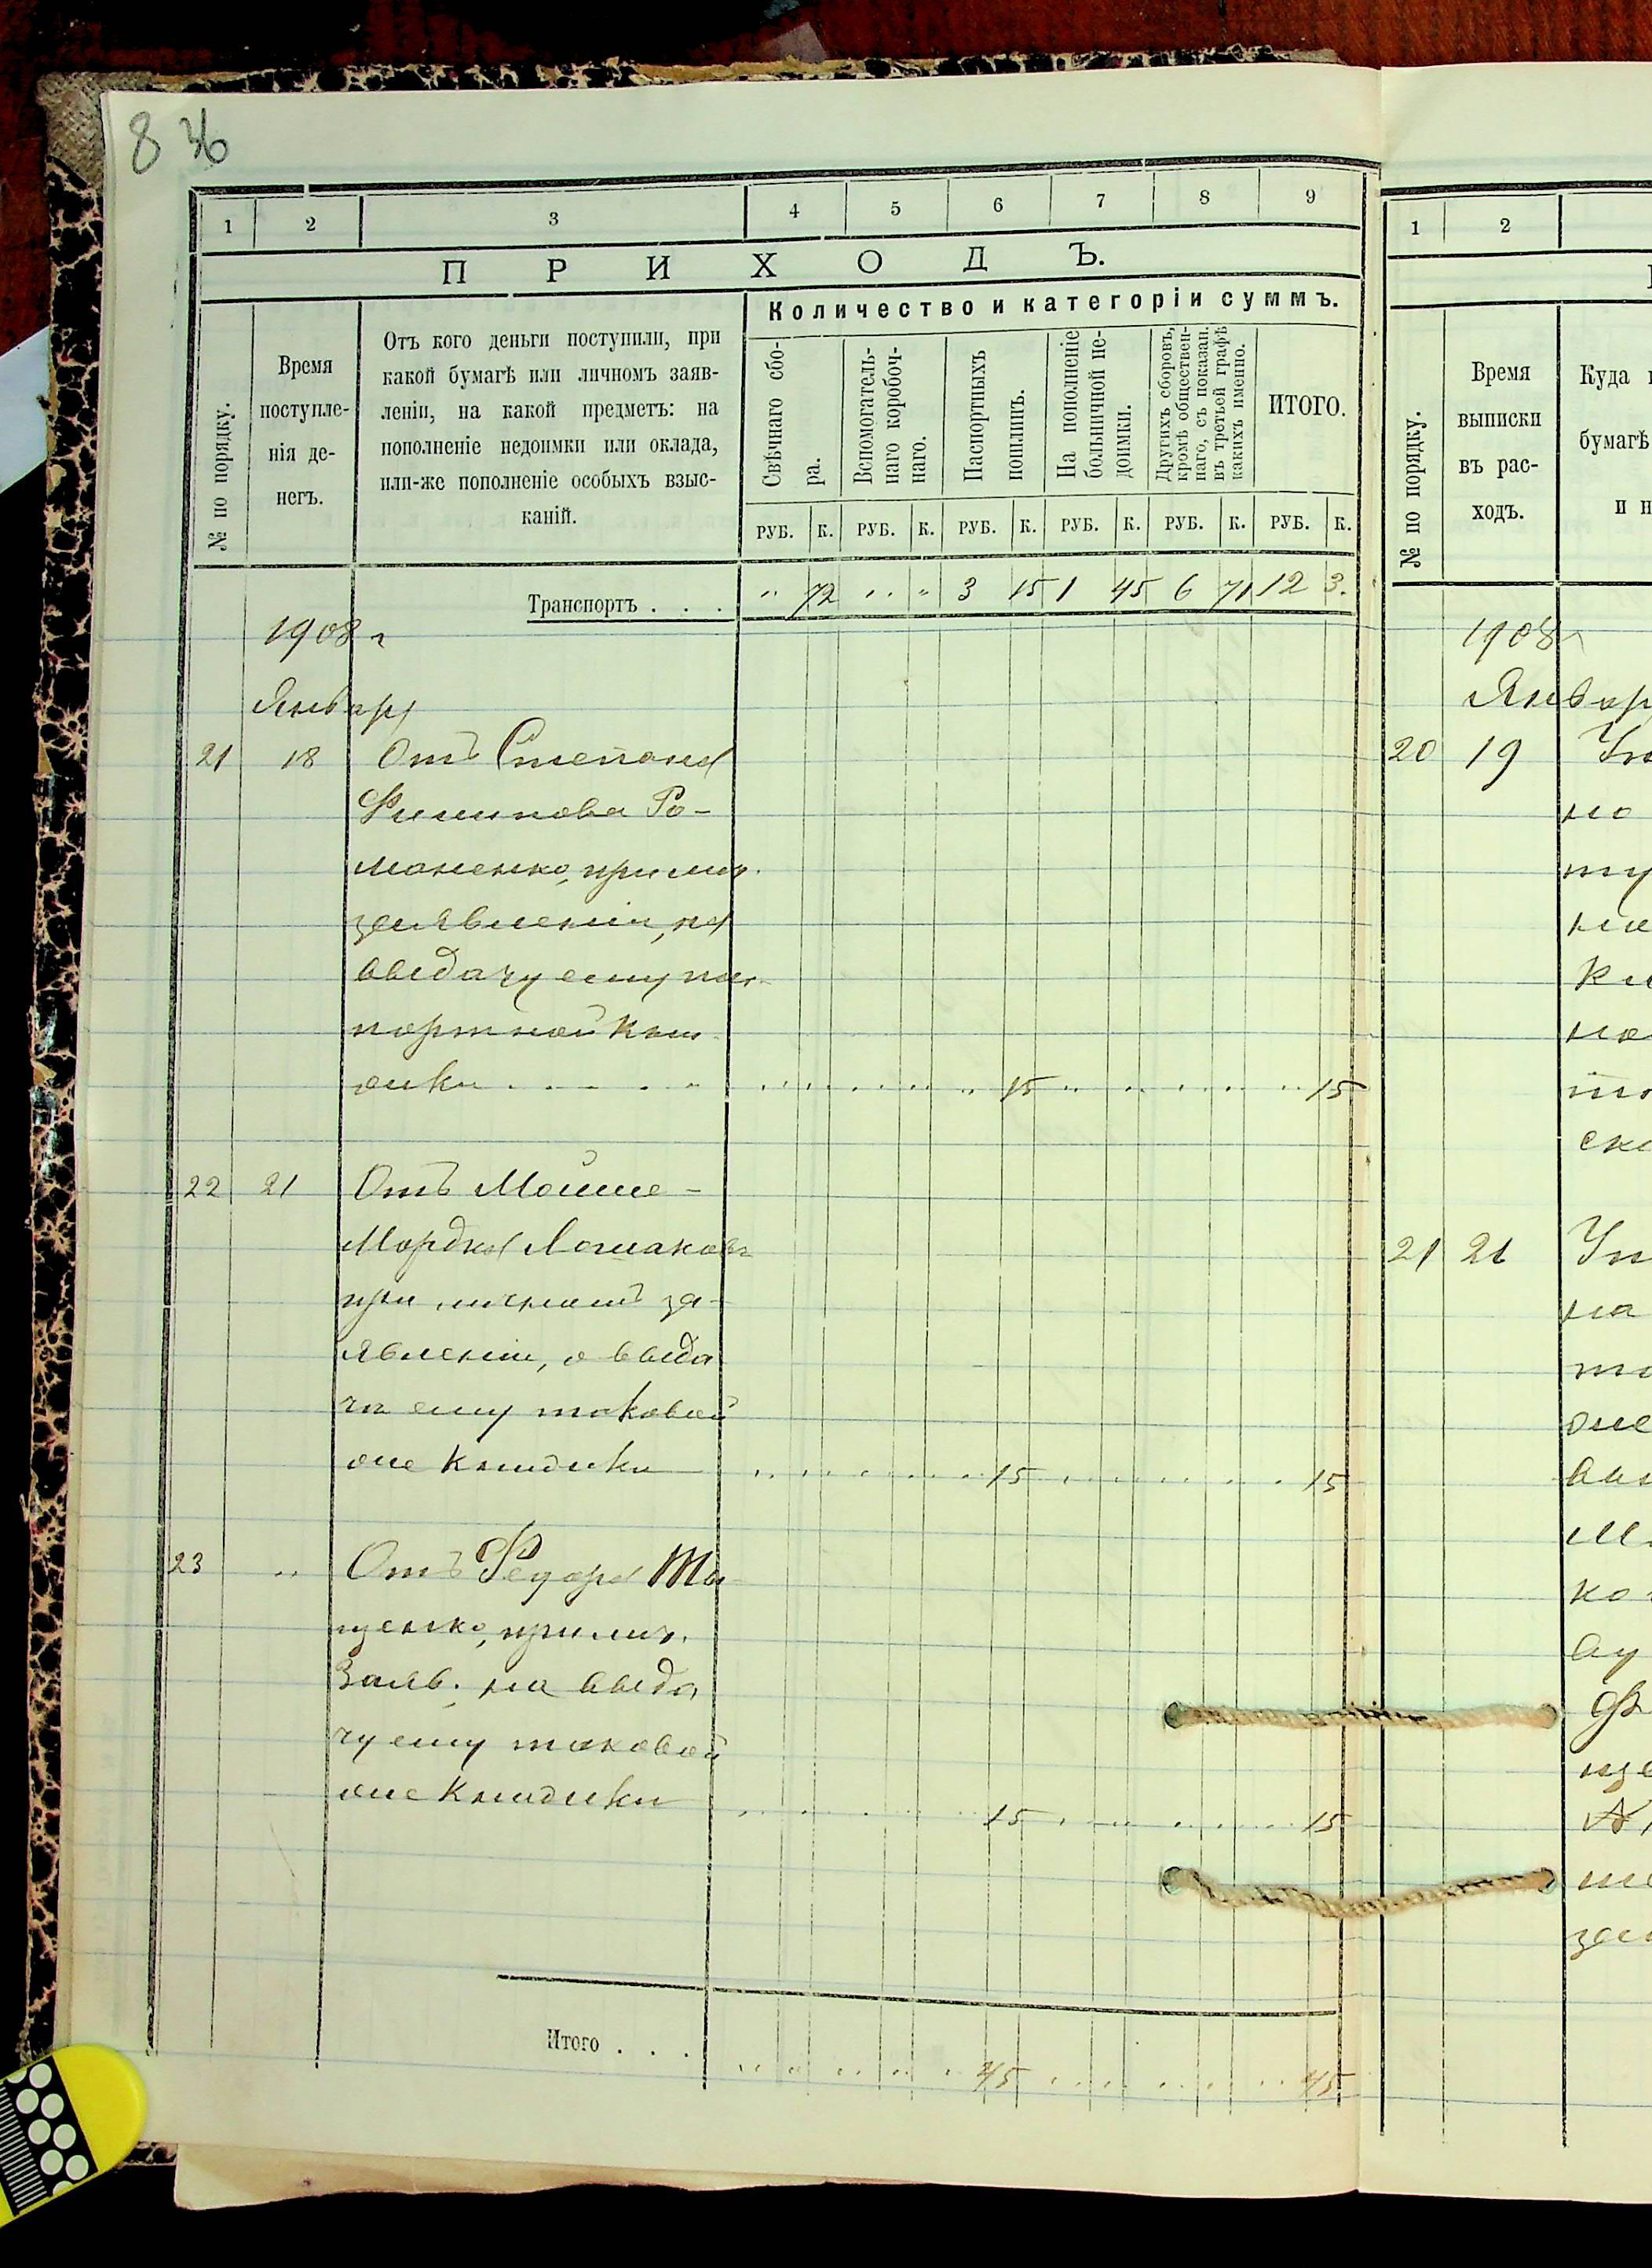 8 36
1 2 3 4 5 6 7 8 9
ПРИХОДЪ.
№ по порядку.
Время
поступле-
нія де-
негъ.
Отъ кого деньги поступили, при
какой бумагѣ или личномъ заяв-
леніи, на какой предметъ: на
пополненіе недоимки или оклада,
или-же пополненіе особыхъ взыс-
каній.
Количество и категоріи суммъ.
Свѣчнаго сбо-
ра.
Вспомогатель-
наго коробоч-
наго.
Паспортныхъ
пошлинъ.
На пополненіе
больничной не-
доимки.
Другихъ сборовъ,
кромѣ обществен-
наго, съ показан.
въ третьей графѣ
какихъ именно.
ИТОГО.
РУБ. К. РУБ. К. РУБ. К. РУБ. К. РУБ. К. РУБ. К.
Транспортъ . . . " 72 " " 3 15 1 45 6 71 12 3.
1908 г
Январь
21 18 Отъ Степана
Филипова Ро-
маненко, при лич.
заявленіи, на
выдачу ему пас-
портной кни
жки 15 15
22 21 Отъ Мойше-
Мордка
при личномъ за-
явленіи, о выда
чи ему таковой
же книжки 15 15
23 " Отъ Федора
щенко, при лич.
Заяв. на выда
чу ему таковой
же книжки 15 15
Итого . . . 45 45
1 2
№ по порядку.
Время
выписки
въ рас-
ходъ.
Куда
бумагѣ
и н
1908 г
Январ
20 19
но
ту
ско
21 21
на
же
ко
ву
Ф
ще